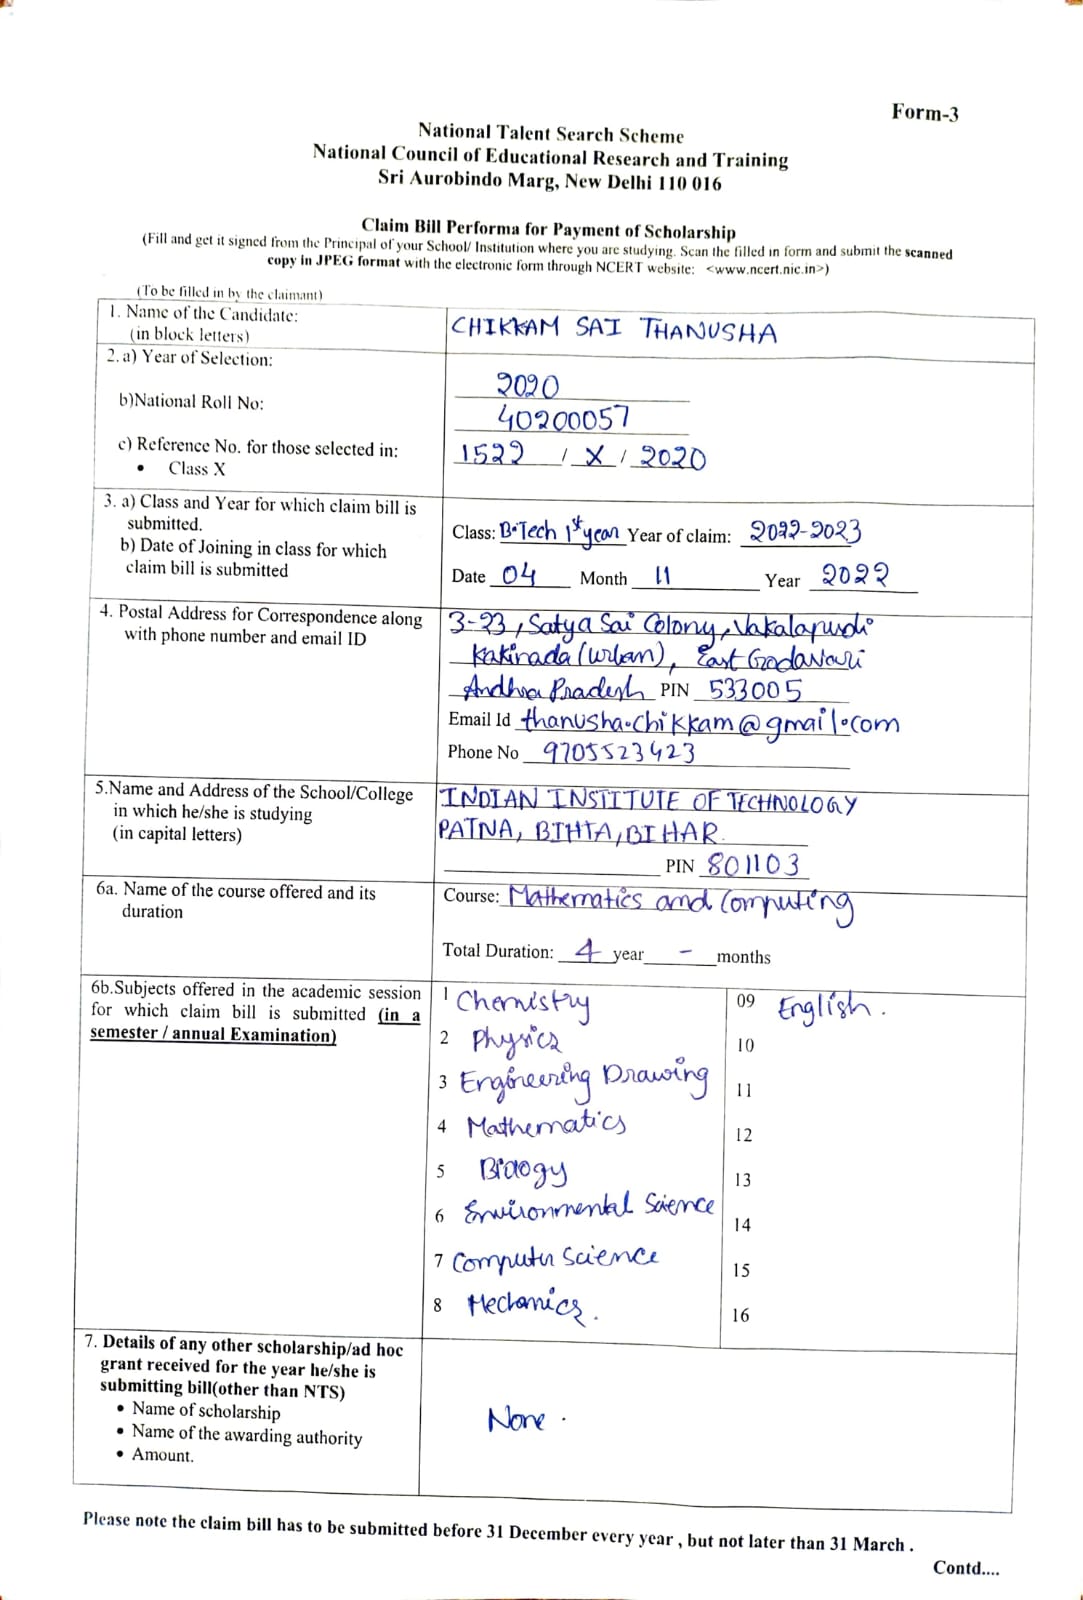 Form-3
National Talent Search Scheme
National Council of Educational Research and Training
Sri Aurobindo Marg, New Delhi 110 016
Claim Bill Performa for Payment of Scholarship
(Fill and get it signed from the Principal of your School/ Institution where you are studying. Scan the filled in form and submit the scanned
copy in JPEG format with the electronic form through NCERT website: <www.ncert.nic.in>)
(To be filled in by the claimant)
1. Name of the Candidate:
(in block letters)
CHIKKAM SAI THANUSHA
2. a) Year of Selection:
2020
b)National Roll No:
40200057
c) Reference No. for those selected in:
• Class X
1522 / X / 2020
3. a) Class and Year for which claim bill is
submitted.
Class: B.Tech 1st year Year of claim: 2022-2023
b) Date of Joining in class for which
claim bill is submitted
Date 04 Month 11 Year 2022
4. Postal Address for Correspondence along
with phone number and email ID
3-23, Satya Sai Colony, Vakalapudi
Kakinada (urban), East Godavari
Andhra Pradesh PIN 533005
Email Id thanusha.chikkam@gmail.com
Phone No 9705523423
5.Name and Address of the School/College
in which he/she is studying
(in capital letters)
INDIAN INSTITUTE OF TECHNOLOGY
PATNA, BIHTA, BIHAR.
PIN 801103
6a. Name of the course offered and its
duration
Course: Mathematics and Computing
Total Duration: 4 year - months
6b.Subjects offered in the academic session
for which claim bill is submitted (in a
semester / annual Examination)
1 Chemistry
2 Physics
3 Engineering Drawing
4 Mathematics
5 Biology
6 Environmental Science
7 Computer Science
8 Mechanics.
09 English.
10
11
12
13
14
15
16
7. Details of any other scholarship/ad hoc
grant received for the year he/she is
submitting bill(other than NTS)
• Name of scholarship
• Name of the awarding authority
• Amount.
None.
Please note the claim bill has to be submitted before 31 December every year , but not later than 31 March .
Contd....